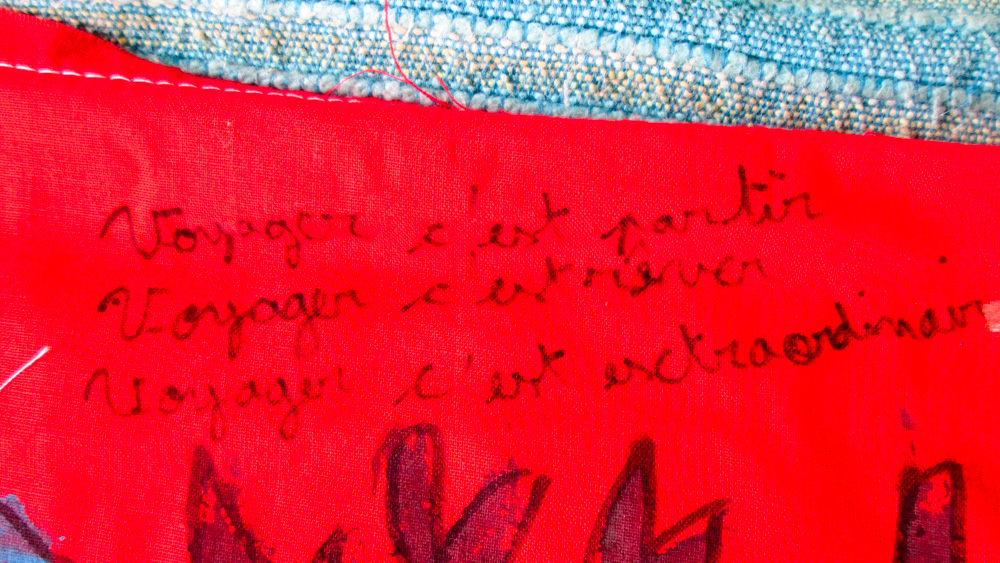 Voyager c'est partir
Voyager c'est rêver
Voyager c'est extraordinair